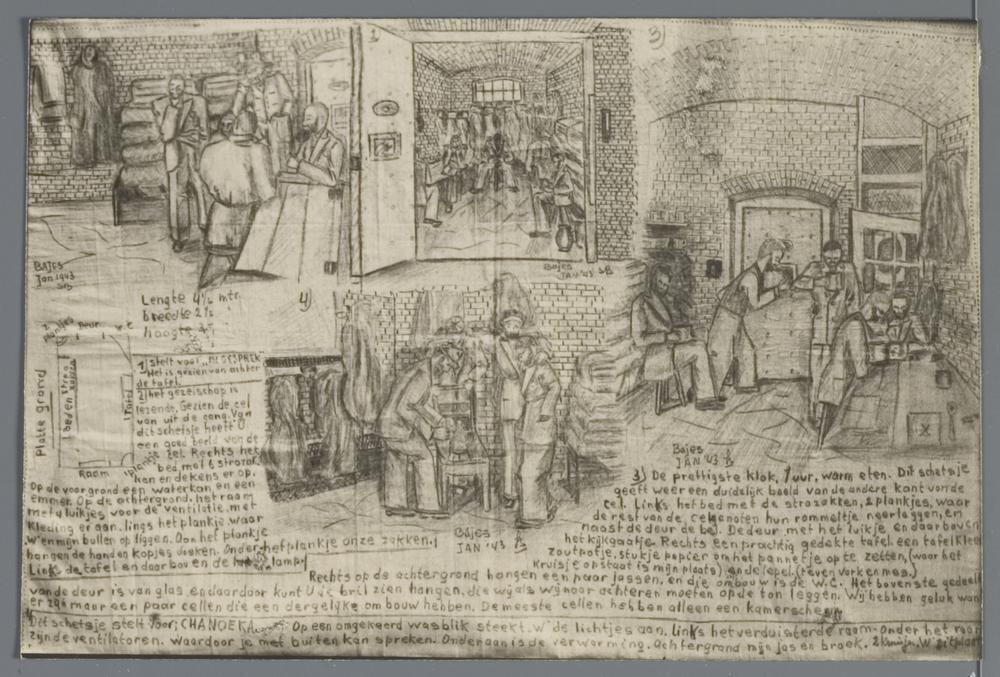 1)
3)
BAJES
Jan 1943
SB
Bajes
JAN '43 SB
Lengte 4½ mtr.
breedte 2½
hoogte
4)
plankjes
Deur
w.c
Platte grond
bed en stroozakken
Tafel
Raam
plankje
1) stelt voor „BIJGESPREK
Het is gezien van achter
de tafel.
2) het gezelschap is
lezende. Gezien de cel
van uit de gang. Van
dit schetsje heeft U
een goed beeld van de
cel. Rechts het
bed met 6 stroozak
ken en dekens er op.
Op de voorgrond een waterkan en een
emmer. Op de achtergrond het raam
met 4 luikjes voor de ventilatie, met
kleding er aan. lings het plankje waar
W. en mijn bullen op liggen. Aan het plankje
hangen de handen kopjes doeken. Onder het plankje onze zakken.
Links de tafel en daar boven de lamp
Bajes
JAN '43
Bajes
JAN '43
3) De prettigste klok, 1 uur, warm eten. Dit schetsje
geeft weer een duidelijk beeld van de andere kant van de
cel. Links het bed met de strozakken, 2 plankjes, waar
de rest van de celgenoten hun rommeltje neerleggen, en
naast de deur de bel. De deur met het luikje en daar boven
het kijkgaatje. Rechts een prachtig gedekte tafel een tafelkleed
zoutpotje, stukje papier om het pannetje op te zetten, (waar het
kruisje op staat is mijn plaats) en de lepel. (teven vork en mes.)
Rechts op de achtergrond hangen een paar jassen, en die ombouw is de W.C. Het bovenste gedeelte
van de deur is van glas en daardoor kunt U de bril zien hangen, die wij als wij naar achteren moeten op de ton leggen. Wij hebben geluk want
er zijn maar een paar cellen die een dergelijke ombouw hebben. De meeste cellen hebben alleen een kamerscherm
Dit schetsje stelt voor; CHANOEKA Op een omgekeerd wasblik steekt W. de lichtjes aan. links het verduisterde raam. Onder het raam
zijn de ventilatoren. waardoor je met buiten kan spreken. Onderaan is de verwarming. Achtergrond mijn jas en broek.